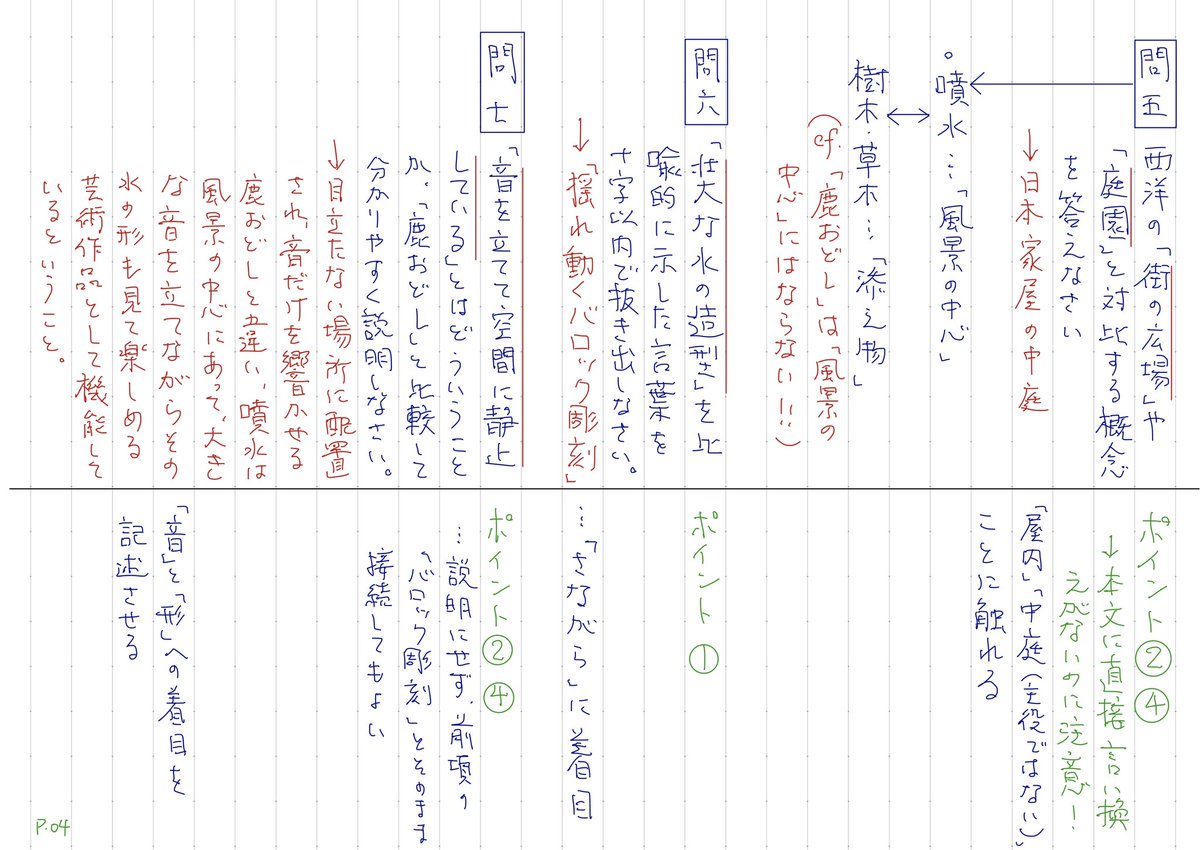 問五
西洋の「街の広場」や
「庭園」と対比する概念
を答えなさい
→日本家屋の中庭
○噴水…「風景の中心」
↔
樹木・草木…「添え物」
(cf.「鹿おどし」は「風景の
中心」にはならない!!)
問六
「壮大な水の造型」を比
喩的に示した言葉を
十字以内で抜き出しなさい。
→「揺れ動くバロック彫刻」
問七
「音を立てて空間に静止
している」とはどういうこと
か。「鹿おどし」と比較して
分かりやすく説明しなさい。
→目立たない場所に配置
され、音だけを響かせる
鹿おどしと違い、噴水は
風景の中心にあって、大き
な音を立てながらその
水の形も見て楽しめる
芸術作品として機能して
いるということ。
ポイント②④
→本文に直接言い換
えがないのに注意!
「屋内」「中庭(主役ではない)」
ことに触れる
ポイント①
…「さながら」に着目
ポイント②④
…説明にせず、前項の
「バロック彫刻」とそのまま
接続してもよい
「音」と「形」への着目を
記述させる
P.04